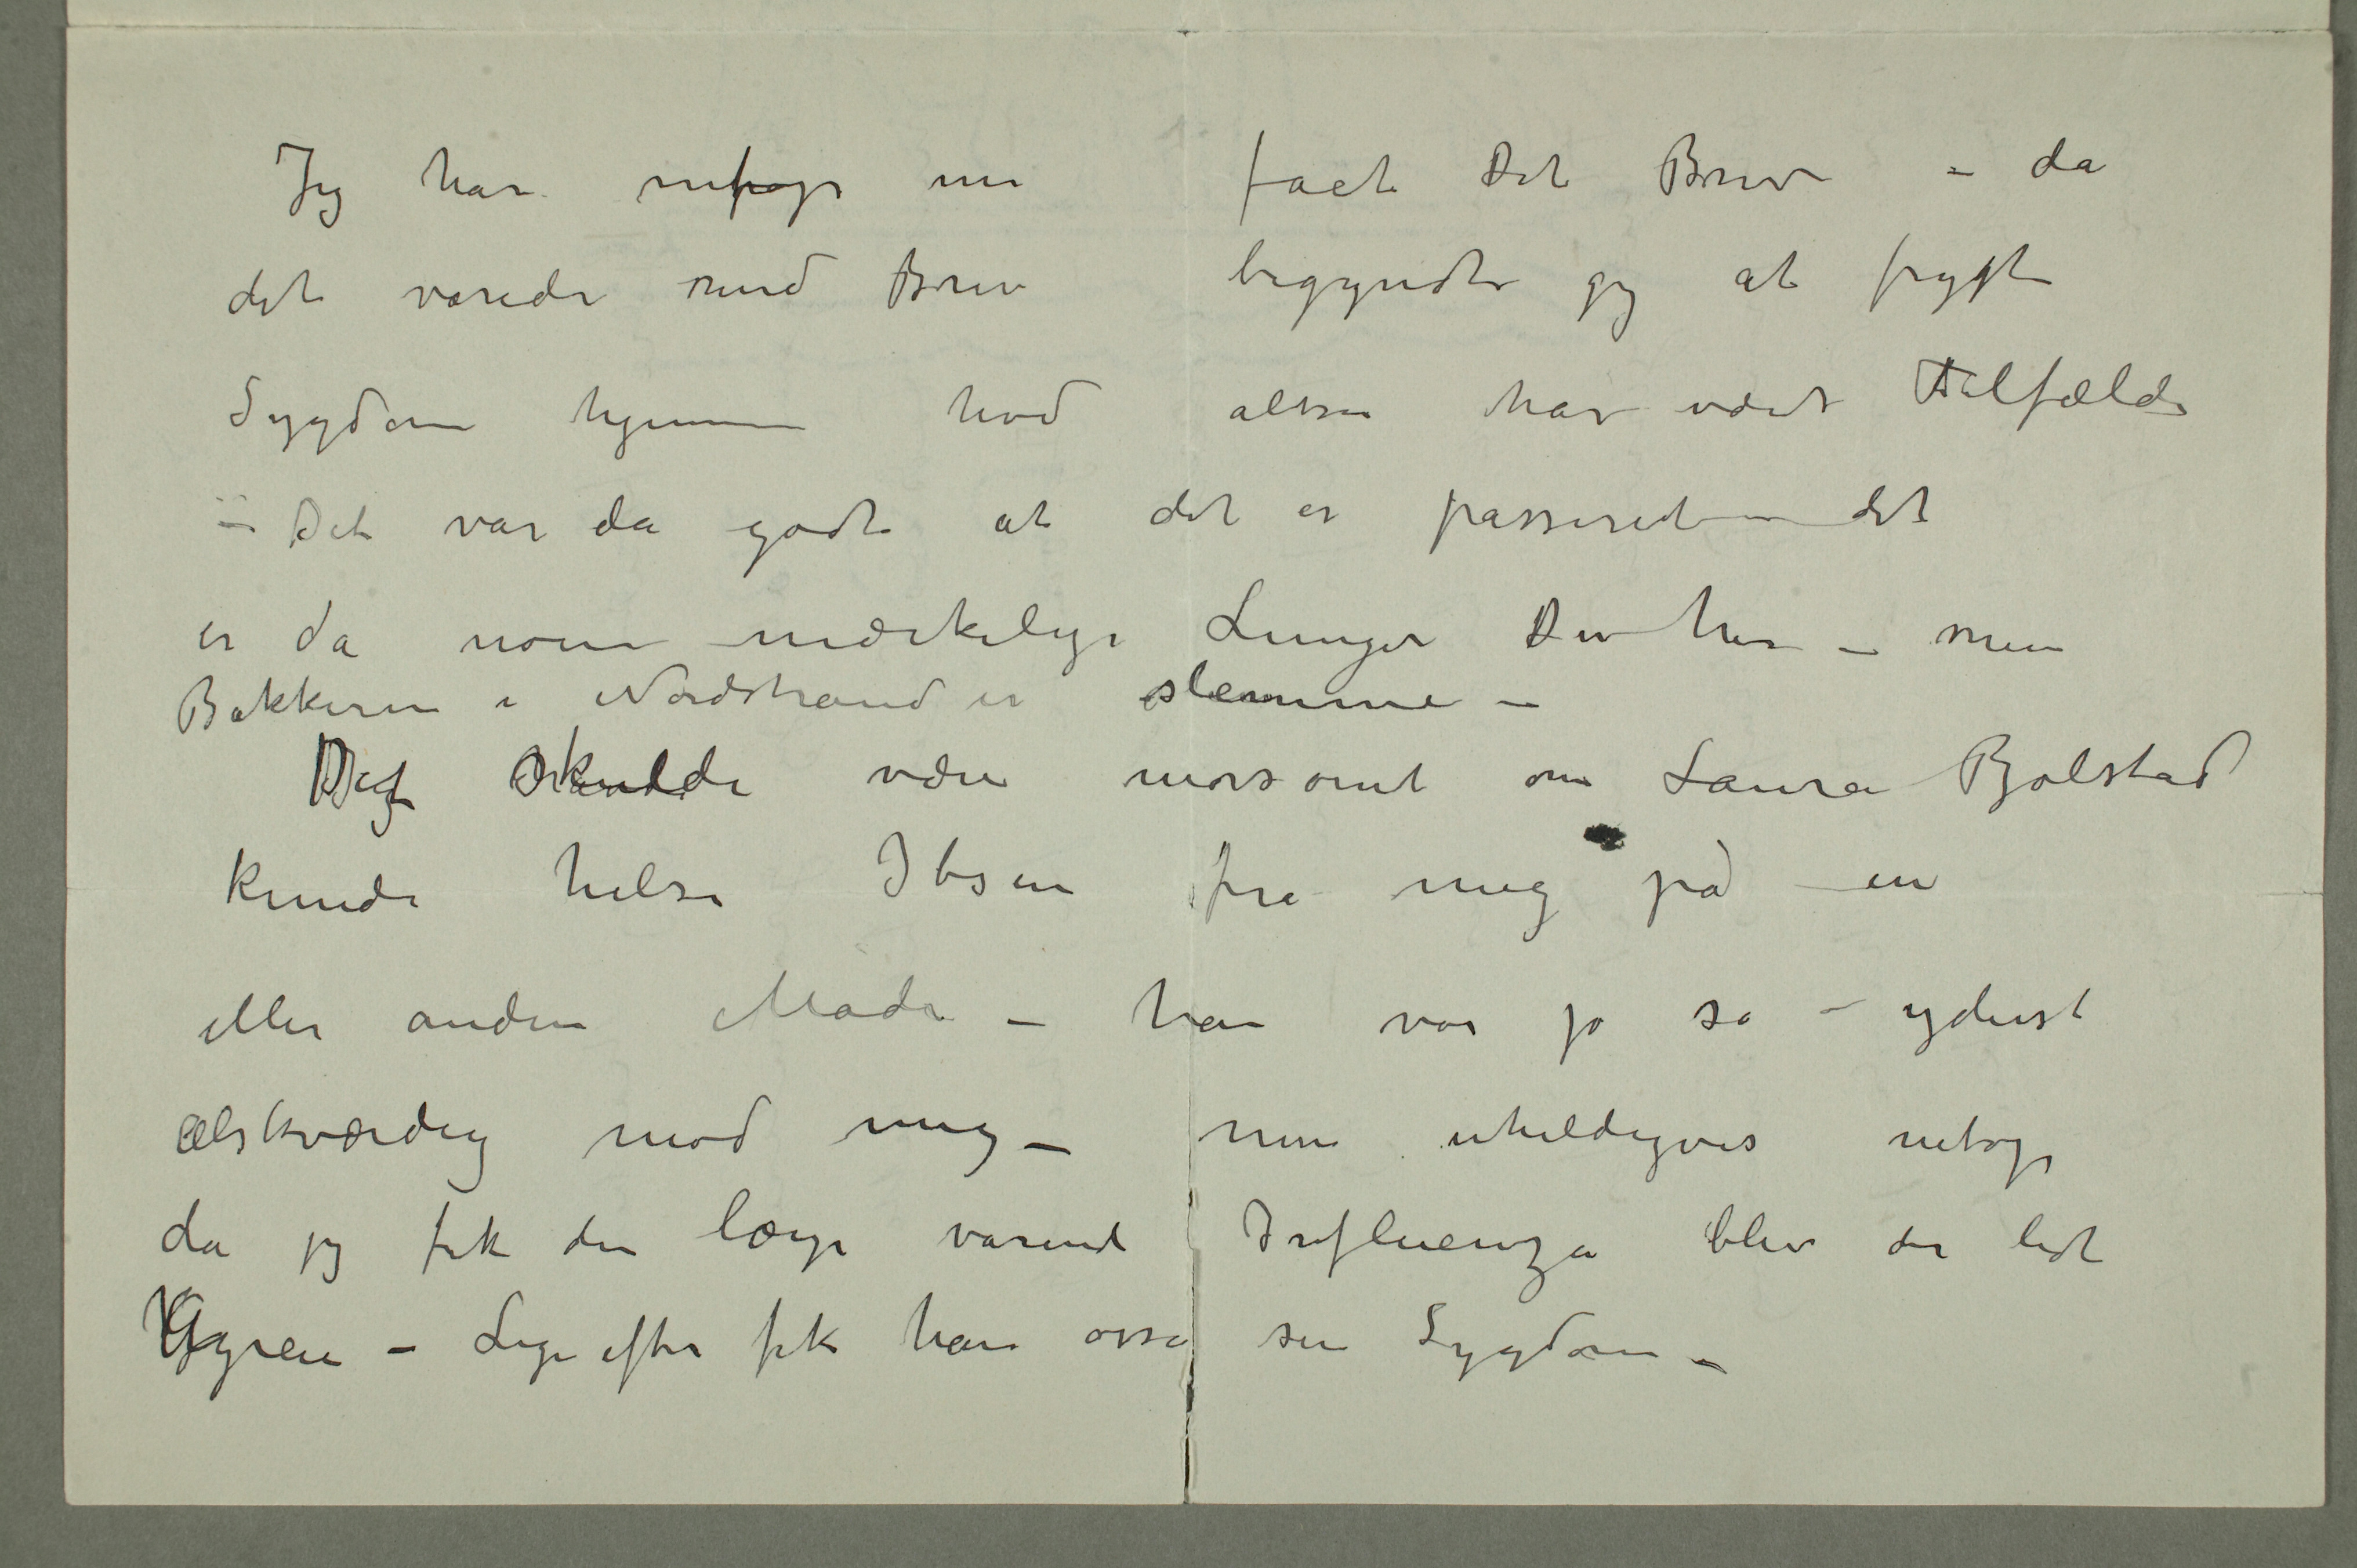 Jeg har netop nu fået Dit Brev – da
det varede med Brev begyndte jeg at frygte
Sygdom hjemme hvad altså har været Tilfælde
– Det var da godt at det er passeret – det
er da nogen mærkelige Lunger Du har – men
Bakkerne i Nordstrand er slemme –
Det skulde være morsomt om Laura Bølstad
kunde hilse Ibsen fra mig på en
eller anden Måde – han var jo så – yderst
elskværdig mod mig – men uheldigvis netop
da jeg fik den lange varende Influenza blev der lidt
– Lige efter fik han osså sin Sygdom –